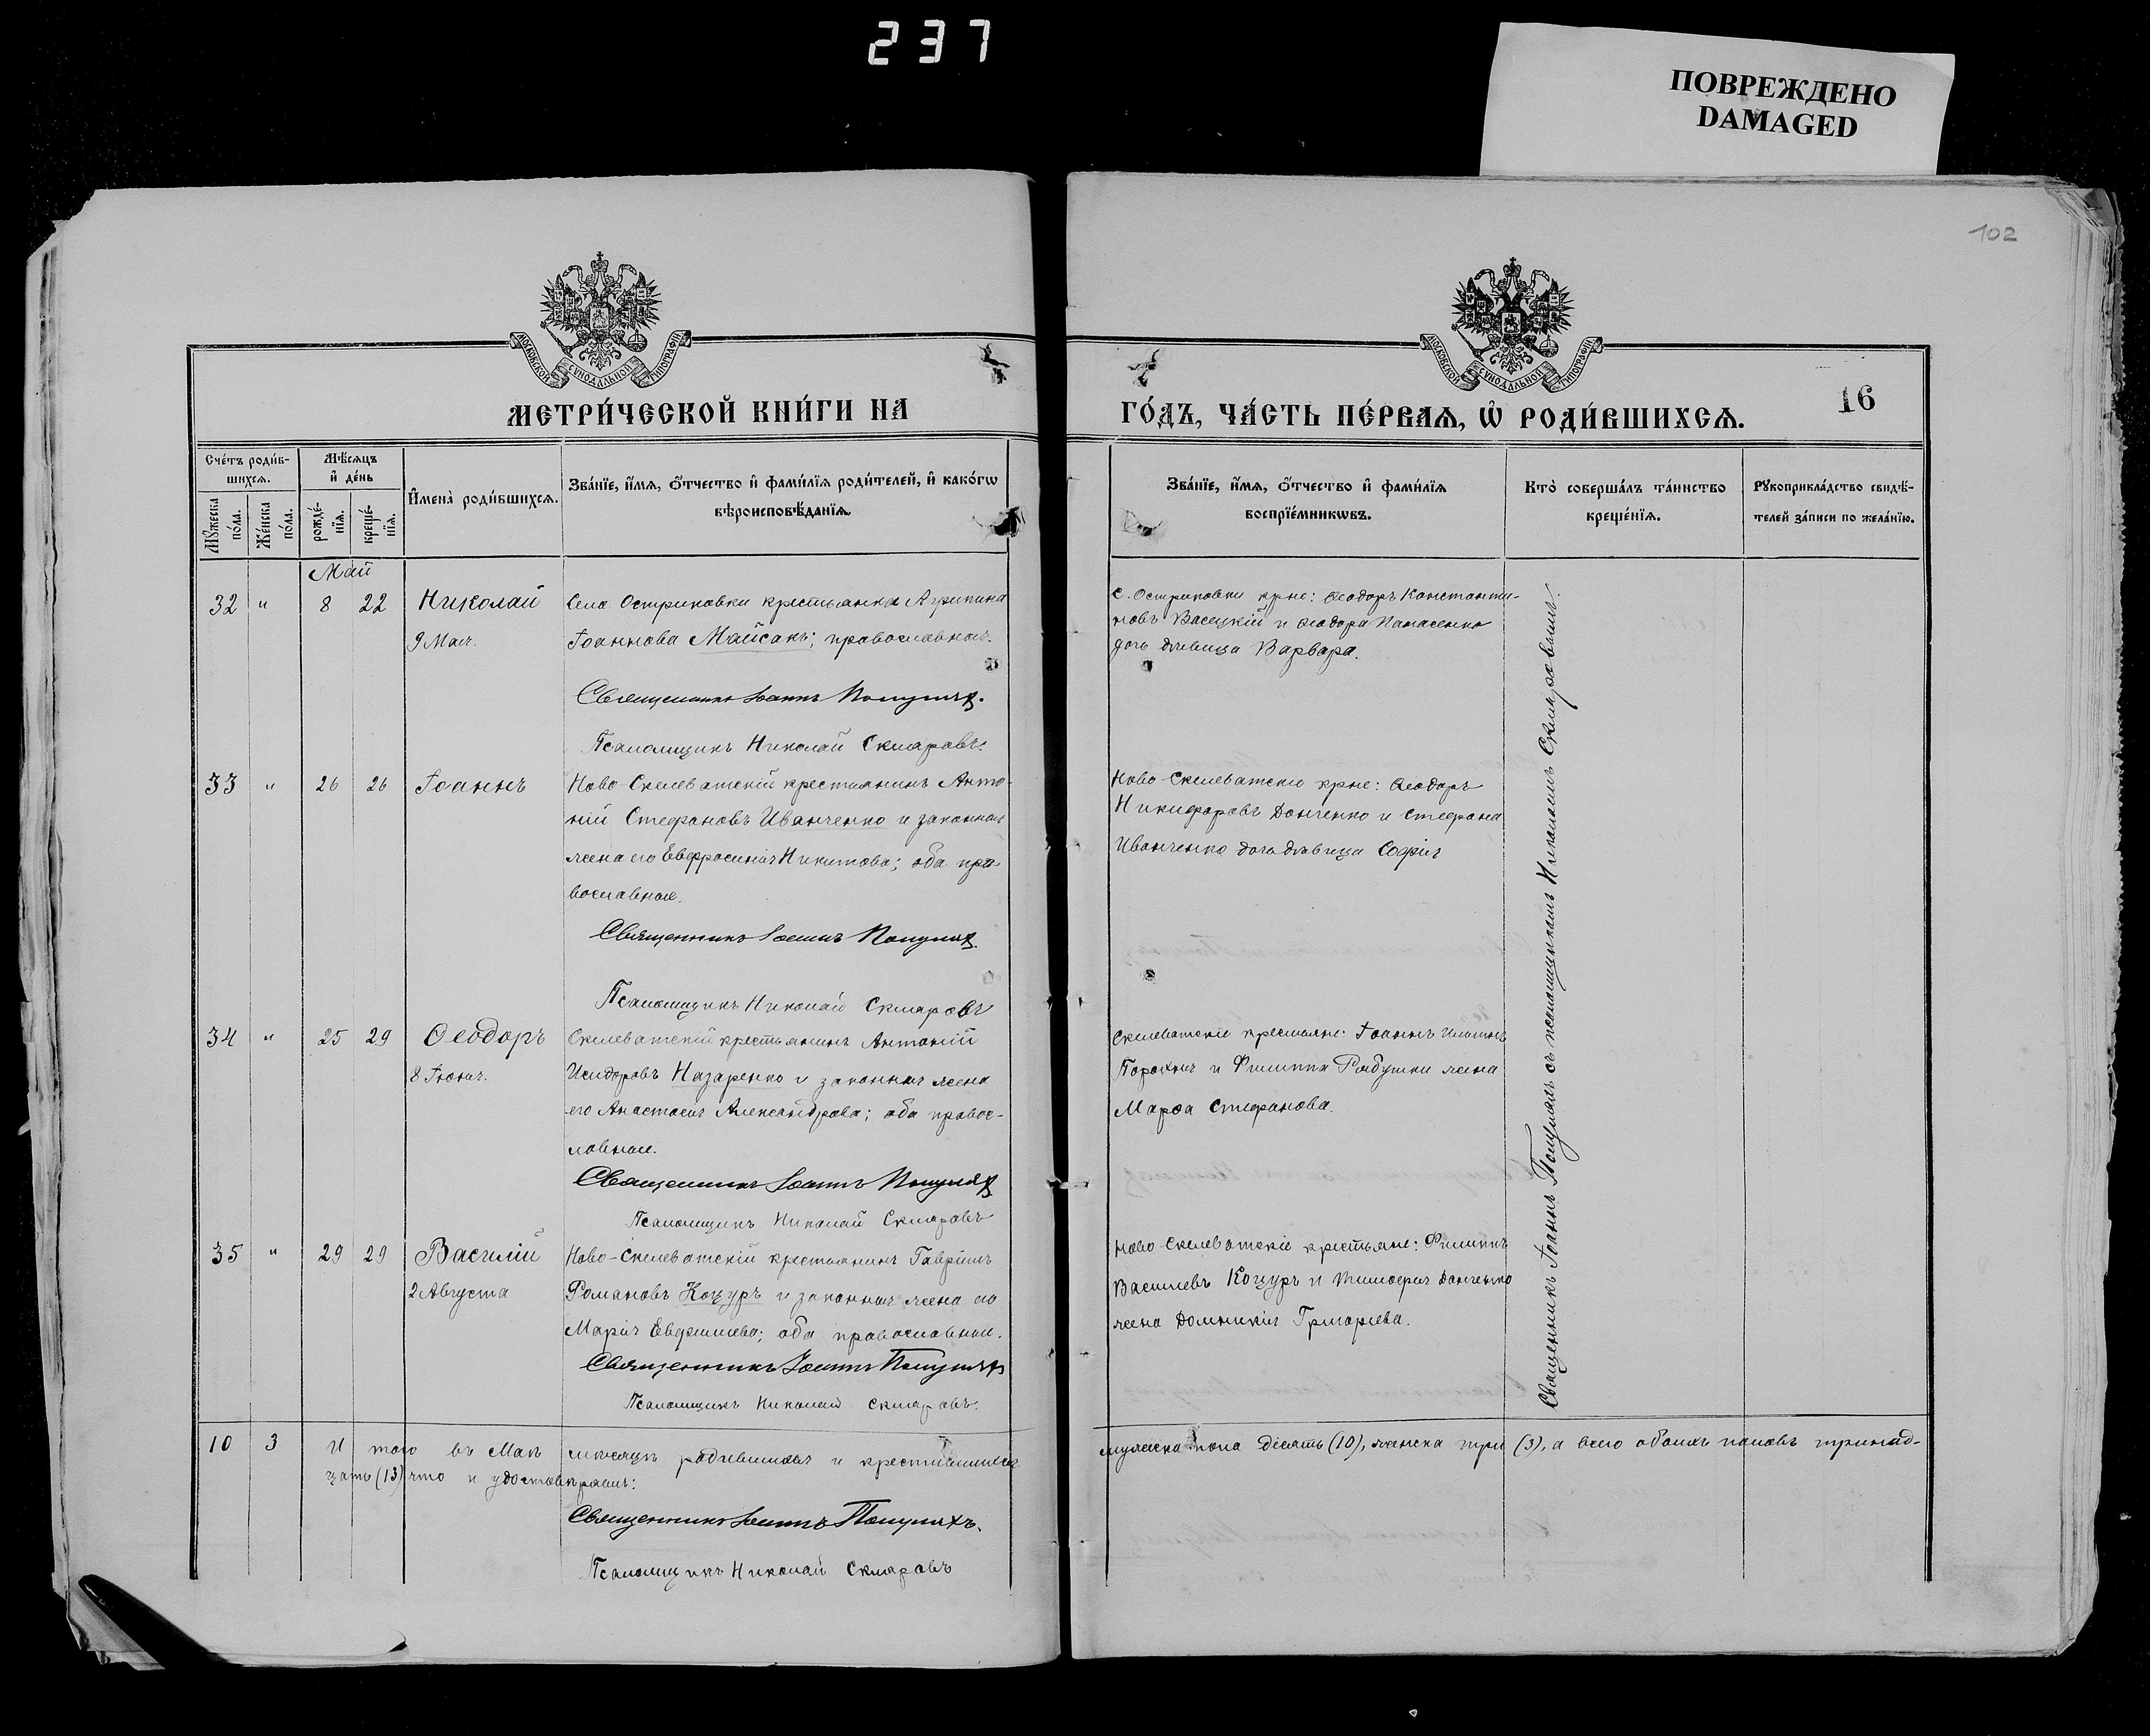 237
ПОВРЕЖДЕНО
DAMAGED
102
МОСКОВСКОЙ СѴНОДАЛЬНОЙ ТИПОГРАФІИ
МОСКОВСКОЙ СѴНОДАЛЬНОЙ ТИПОГРАФІИ
МЕТРИ́ЧЕСКОЙ КНИ́ГИ НА
ГО́ДЪ, ЧА́СТЬ ПЕ́РВАѦ, Ѡ РОДИ́ВШИХСѦ.
16
Сче́тъ роди́в-
шихсѧ.
Мꙋжеска
по́ла.
Же́нска
по́ла.
Мѣ́сѧцъ
и҆ де́нь
рожде́-
нїѧ.
креще́-
нїѧ.
И҆мена̀ роди́вшихсѧ.
Зва́нїе, и҆́мѧ, ѻ҆́тчество и҆ фами́лїѧ роди́телей, и҆ како́гѡ
вѣроисповѣ́данїѧ.
Зва́нїе, и҆́мѧ, ѻ҆́тчество и҆ фами́лїѧ
воспрїе́мникѡвъ.
Кто̀ соверша́лъ та́инство
креще́нїѧ.
Рꙋкоприкла́дство свидѣ́-
телей за́писи по жела́нїю.
Май
32 " 8 22 Николай
9 Мая.
Села Остриковки крестьянка Агрипина
Іоаннова Майсакъ; православная.
Священникъ Іоаннъ Популях.
Псаломщикъ Николай Скляровъ.
с. Остриковки крне: Ѳеодоръ Константи-
новъ Васецкій и Ѳеодора Панасенко
дочь дѣвица Варвара.
33 " 26 26 Іоаннъ
Ново-Скелеватскій крестьянинъ Анто-
ній Стефановъ Иванченко и законная
жена его Евфросинія Никитова; оба пра-
вославные.
Священникъ Іоаннъ Популях.
Псаломщикъ Николай Скляровъ
Ново-Скелеватскіе крне: Ѳеодоръ
Никифоровъ Донченко и Стефана
Иванченко дочь дѣвица Софія
34 " 25 29 Ѳеодоръ
8 Іюня.
Скелеватскій крестьянинъ Антоній
Исидоровъ Назаренко и законная жена
его Анастасія Александрова; оба правос-
лавные.
Священникъ Іоаннъ Популях
Псаломщикъ Николай Скляровъ
Скелеватскіе крестьяне: Іоаннъ
и Филиппа Рябушки жена
Марѳа Стефанова.
35 " 29 29 Василій
2 Августа
Ново-Скелеватскій крестьянинъ Гавріилъ
Романовъ Коцуръ и законная жена его
Марія; оба православные.
Священникъ Іоаннъ Популях
Псаломщикъ Николай Скляровъ.
Ново Скелеватскіе крестьяне: Филиппъ
Васильевъ Коцуръ и Тимофея Донченко
жена Домникія Григорьева.
Священникъ Іоаннъ Популяхъ съ псаломщикомъ Николаемъ Скляровымъ.
10 3 И того въ Маѣ мѣсяцѣ родившихся и крестившихся мужеска пола десять (10), женска три (3), а всего обоихъ половъ тринад-
цать (13) что и удостовѣряемъ:
Священникъ Іоаннъ Популяхъ.
Псаломщикъ Николай Скляровъ